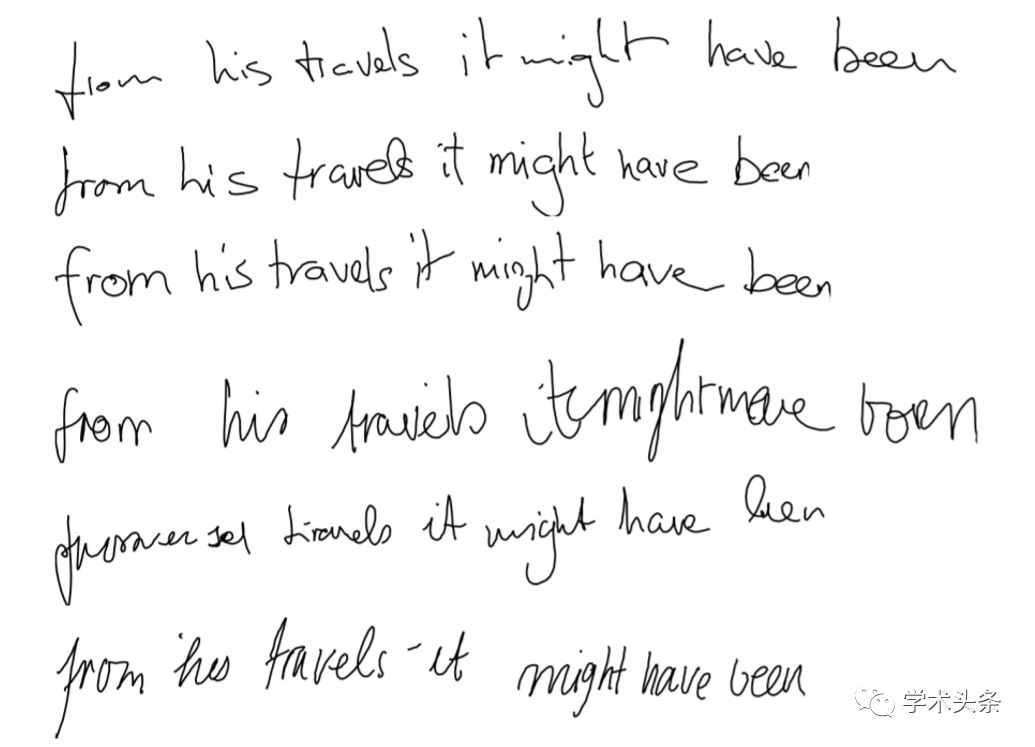 from his travels it might have been
from his travels it might have been
from his travels it might have been
from his travels it
travels it might have been
from his travels-it might have been
学术头条